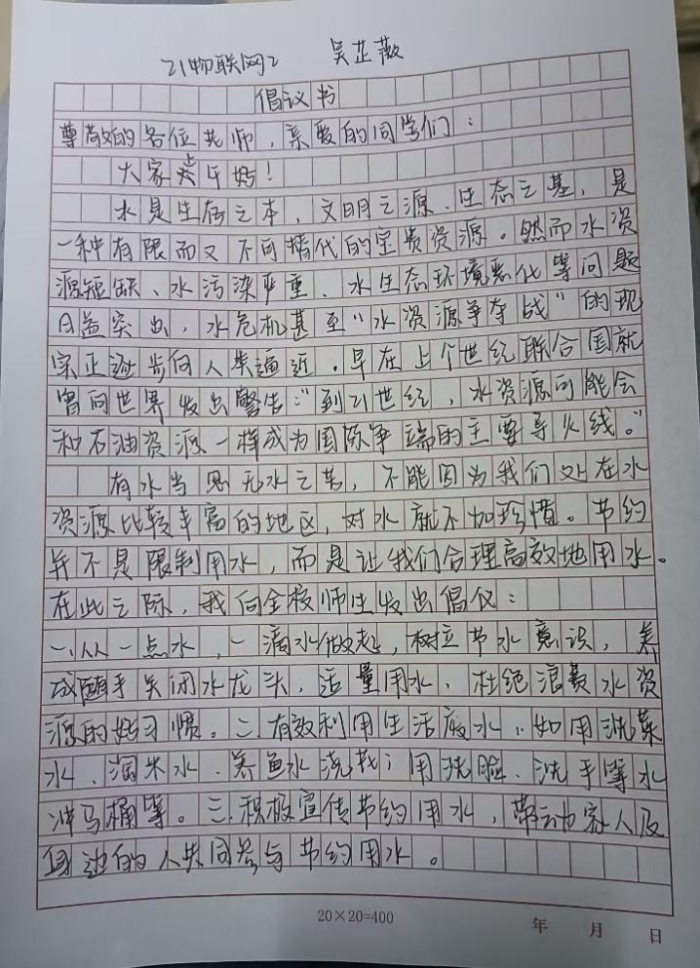 21物联网2 吴芷薇
倡议书
尊敬的各位老师，亲爱的同学们：
大家上午好！
水是生活之本，文明之源、生态之基，是
一种有限而又不可替代的宝贵资源。然而水资
源短缺、水污染严重、水生态环境恶化等问题
日益突出，水危机甚至“水资源争夺战”的现
实正逐步向人类逼近。早在上个世纪联合国就
曾向世界发出警告：“到21世纪，水资源可能会
和石油资源一样成为国际争端的主要导火线。”
有水当思无水之苦，不能因为我们处在水
资源比较丰富的地区，对水就不加珍惜。节约
并不是限制用水，而是让我们合理高效地用水。
在此之际，我向全校师生发出倡仪：
一、从一点水，一滴水做起，树立节水意识，养
成随手关闭水龙头，适量用水、杜绝浪费水资
源的好习惯。二、有效利用生活废水，如用洗菜
水、淘米水、养鱼水浇花；用洗脸、洗手等水
冲马桶等。三、积极宣传节约用水，带动家人及
身边的人共同参与节约用水。
20×20=400
年 月 日